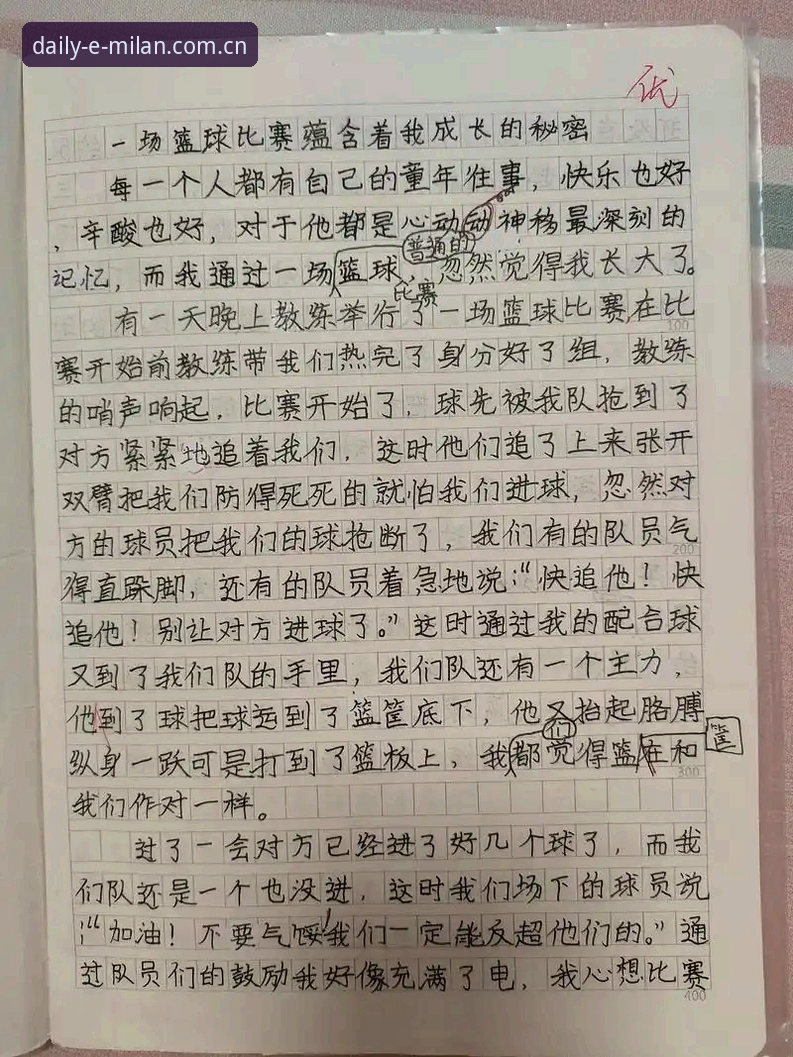 daily-e-milan.com.cn
优
一场篮球比赛蕴含着我成长的秘密
每一个人都有自己的童年往事，快乐也好
，辛酸也好，对于他都是心动动神移最深刻的
普通的
记忆，而我通过一场篮球，忽然觉得我长大了。
比赛
有一天晚上教练举行了一场篮球比赛，在比
100
赛开始前教练带我们热完了身分好了组，教练
的哨声响起，比赛开始了，球先被我队抢到了
对方紧紧地追着我们，这时他们追了上来张开
双臂把我们防得死死的就怕我们进球，忽然对
方的球员把我们的球抢断了，我们有的队员气
200
得直跺脚，还有的队员着急地说：“快追他！快
追他！别让对方进球了。”这时通过我的配合球
又到了我们队的手里，我们队还有一个主力，
他到了球把球运到了篮筐底下，他又抬起胳膊
们
筐
纵身一跃可是打到了篮板上，我都觉得篮在和
300
我们作对一样。
过了一会对方已经进了好几个球了，而我
们队还是一个也没进，这时我们场下的球员说
：“加油！不要气馁！我们一定能反超他们的。”通
过队员们的鼓励我好像充满了电，我心想比赛
400